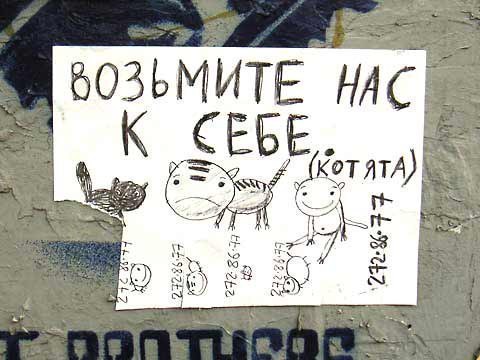 ВОЗЬМИТЕ НАС
К СЕБЕ.
(КОТЯТА)
272-86-77
272-86-77
272-86-77
272-86-77
272-86-77
T BROTHERS